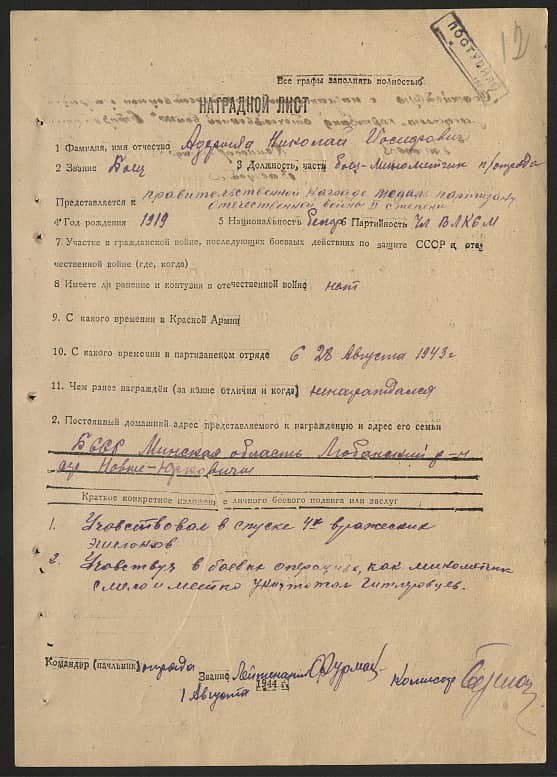 ПОСТУПИЛО
12
Все графы заполнять полностью
НАГРАДНОЙ ЛИСТ
1 Фамилия, имя отчество Николай Иосифович
2 Звание Боец 3 Должность, часть боец-минометчик п/отряда
Представляется к правительственной награде медаль партизану
отечественной войны II степени
4 Год рождения 1919 5 Национальность 6 Партийность Чл ВЛКСМ
7 Участие в гражданской войне, последующих боевых действиях по защите СССР и оте
чественной войне (где, когда)
8 Имеете ли ранение и контузии в отечественной войне нет
9. С какого времени в Красной Армии
10. С какого времени в партизанском отряде с 28 Августа 1943 г
11. Чем ранее награждён (за какие отличия и когда) ненаграждался
2. Постоянный домашний адрес представляемого к награждению и адрес его семьи
БССР Минская область Любанский р-н
Новые-Юрковичи
Краткое конкретное изложение личного боевого подвига или заслуг
1. Учовствовал в спуске 4х вражеских
эшелонов
2. Учовствуя в боевых операциях, как минометчик
смело и метко уничтожал гитлеровцев.
Командир (начальник) отряда
Звание Лейтенант Фурман Комисар
1 Августа 1944 г.